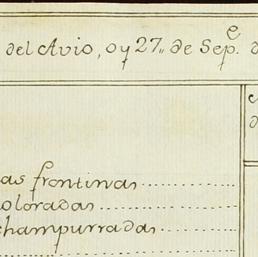 del Avio, oy 27,, de Sep.e
as frontinas
oloradas
champurradas